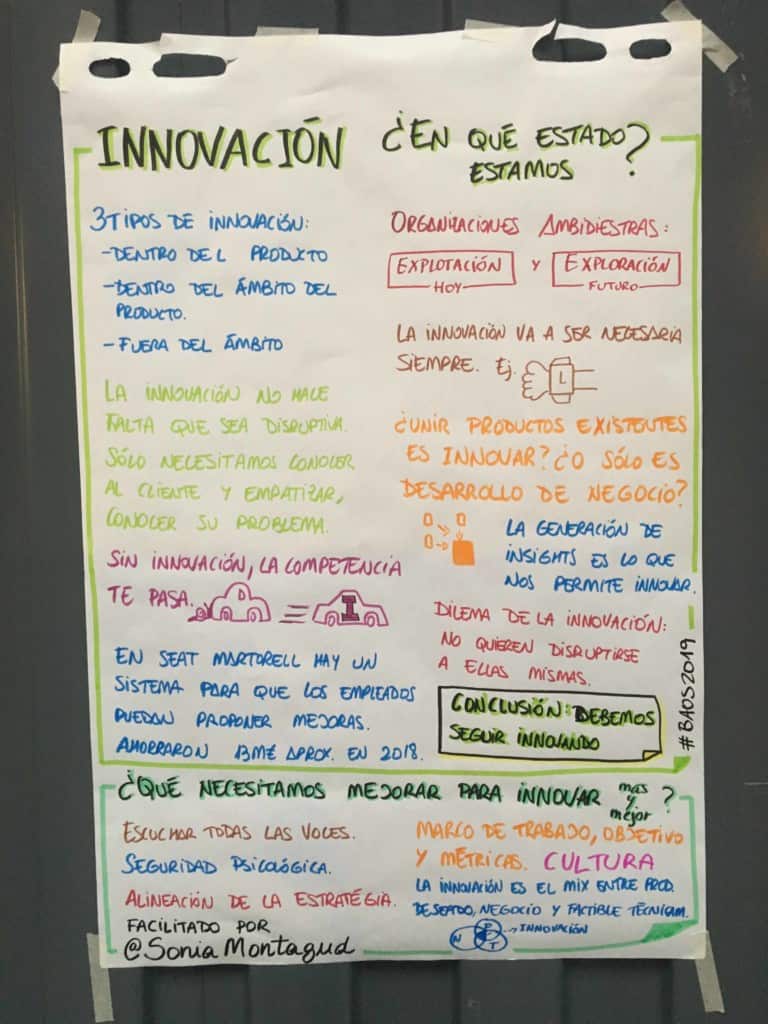 INNOVACIÓN
¿EN QUÉ ESTADO
ESTAMOS?
3 TIPOS DE INNOVACIÓN:
-DENTRO DEL PRODUCTO
-DENTRO DEL ÁMBITO DEL
PRODUCTO.
-FUERA DEL ÁMBITO
LA INNOVACIÓN NO HACE
FALTA QUE SEA DISRUPTIVA.
SÓLO NECESITAMOS CONOCER
AL CLIENTE Y EMPATIZAR,
CONOCER SU PROBLEMA.
SIN INNOVACIÓN, LA COMPETENCIA
TE PASA.
I
EN SEAT MARTORELL HAY UN
SISTEMA PARA QUE LOS EMPLEADOS
PUEDAN PROPONER MEJORAS.
AHORRARON 13M€ APROX. EN 2018.
ORGANIZACIONES AMBIDIESTRAS:
EXPLOTACIÓN Y EXPLORACIÓN
HOY FUTURO
LA INNOVACIÓN VA A SER NECESARIA
SIEMPRE. Ej.
L
¿UNIR PRODUCTOS EXISTENTES
ES INNOVAR? ¿O SÓLO ES
DESARROLLO DE NEGOCIO?
LA GENERACIÓN DE
INSIGHTS ES LO QUE
NOS PERMITE INNOVAR.
DILEMA DE LA INNOVACIÓN:
NO QUIEREN DISRUPTIRSE
A ELLAS MISMAS.
CONCLUSIÓN: DEBEMOS
SEGUIR INNOVANDO
#BAOS2019
¿QUÉ NECESITAMOS MEJORAR PARA INNOVAR mas y mejor?
ESCUCHAR TODAS LAS VOCES.
SEGURIDAD PSICOLÓGICA.
ALINEACIÓN DE LA ESTRATÉGIA.
FACILITADO POR
@Sonia Montagud
MARCO DE TRABAJO, OBJETIVO
Y MÉTRICAS. CULTURA
LA INNOVACIÓN ES EL MIX ENTRE PROD.
DESEADO, NEGOCIO Y FACTIBLE TÉCNICAM.
N P T INNOVACIÓN